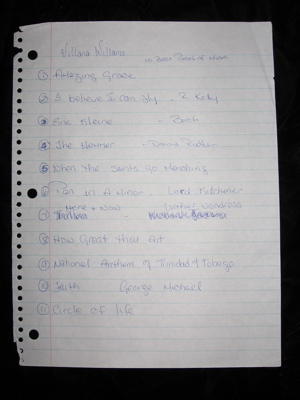 Villana Williams
10 Best Pieces of Music
① Amazing Grace
② I believe I can fly - R Kelly
③ Eine kleine - Bach
④ The Hammer - David Rudder
⑤ When the Saints go Marching
⑥ Pan in A Minor - Lord Kitchener
Here + Now Luther Vandross
⑦
⑧ How Great thou Art
⑨ National Anthem of Trinidad & Tobago
⑩ Faith George Michael
⑪ Circle of life